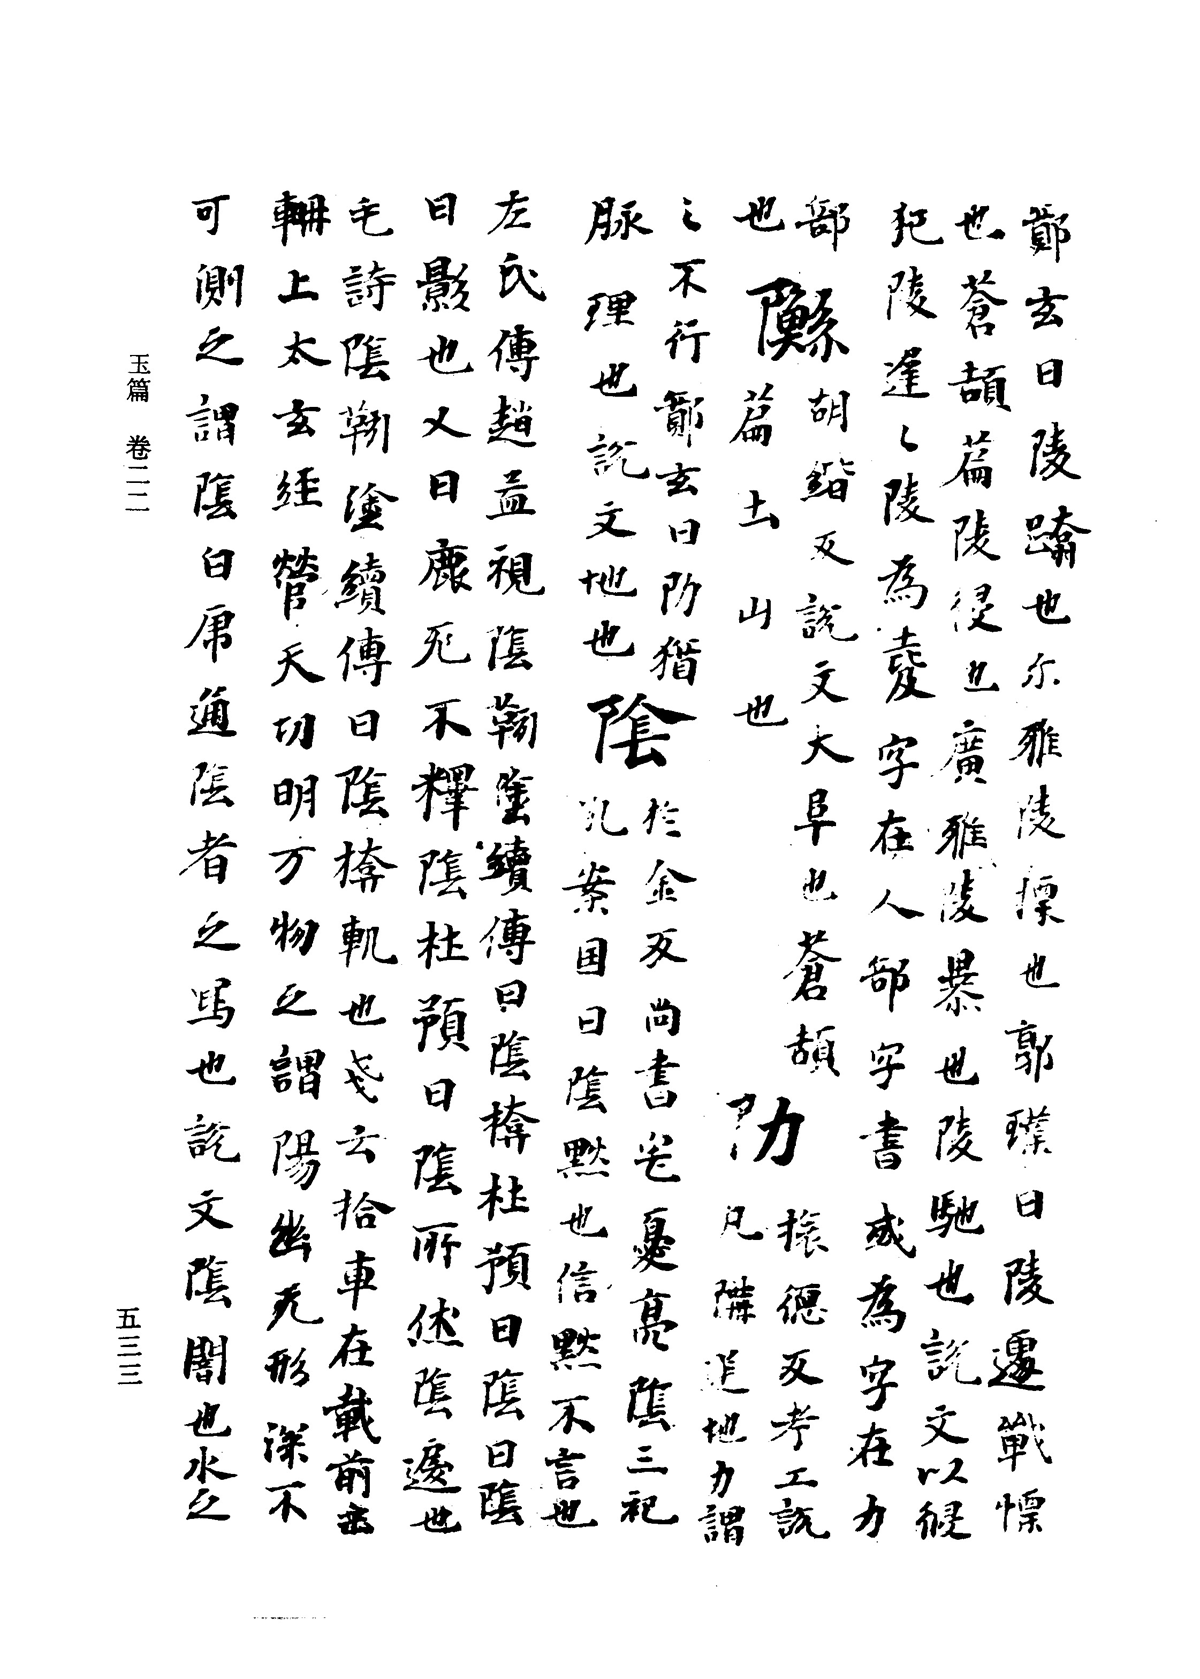 鄭玄曰陵躐也尓雅陵慄也郭璞曰陵遽戰慄
也蒼頡篇陵侵也廣雅陵暴也陵馳也說文以侵
犯陵遲〻陵為夌字在人部字書或為字在力
部 𨽉 胡鍇反說文大阜也蒼頡
也 篇土山也 阞 振德反考工記
凡隣道地力謂
〻不行鄭玄曰阞猶
脉理也說文地也 陰 於金反尚書亮陰三祀
孔案国曰陰默也信默不言也
左氏傳趙孟視陰靷塗續傳曰陰揜杜預曰陰曰陰
曰影也又曰鹿死不釋陰杜預曰陰所休陰處也
毛詩陰靷塗續傳曰陰揜軌也戔云拾車在載前垂
輈上太玄經營天切明万物之謂陽幽无形深不
可測之謂陰白虎通陰者之馬也說文陰闇也水之
玉篇 卷二二
五三三